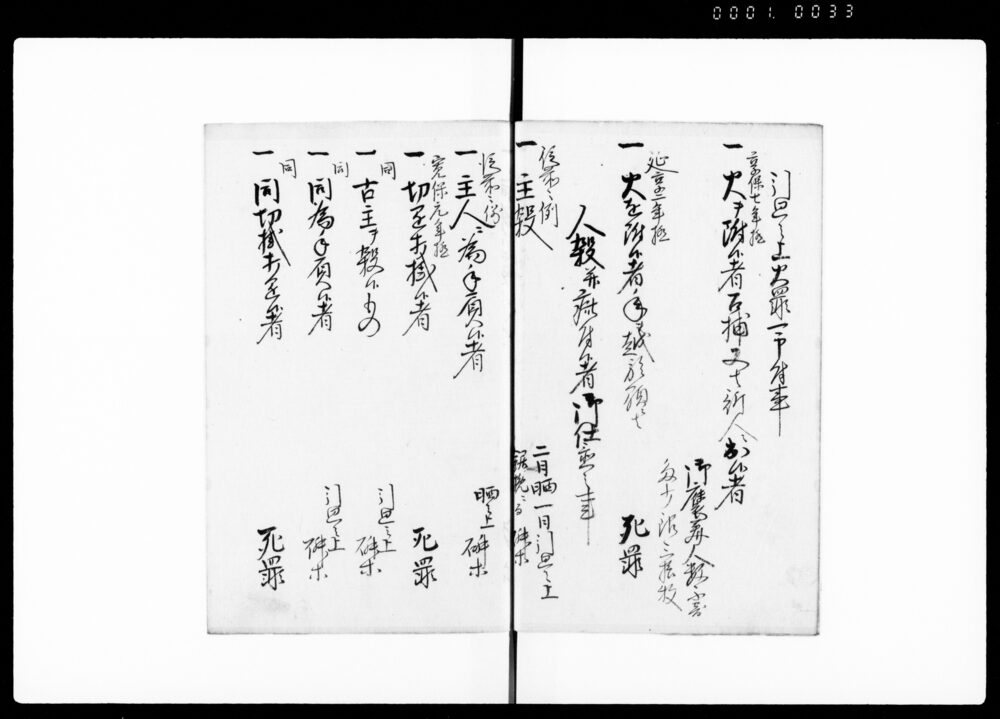 0001.0033
引廻之上火罪可申付事
享保七年極
一 火ヲ附候者召捕又ハ訴人出候者
御褒美人数ニ不寄
銀三拾枚
延享二年極
一 火を附候者を 死罪
人殺并疵付候者御仕置之事
従前々之例
一 主殺
二日晒一日引廻之上
鋸挽ニ而磔
従前々之例
一 主人ニ為手負候者 晒之上磔
寛保元年極
一 切込打掛候者 死罪
同
一 古主ヲ殺候もの 引廻之上磔
同
一 同為手負候者 引廻之上磔
同
一 同切掛打込候者 死罪